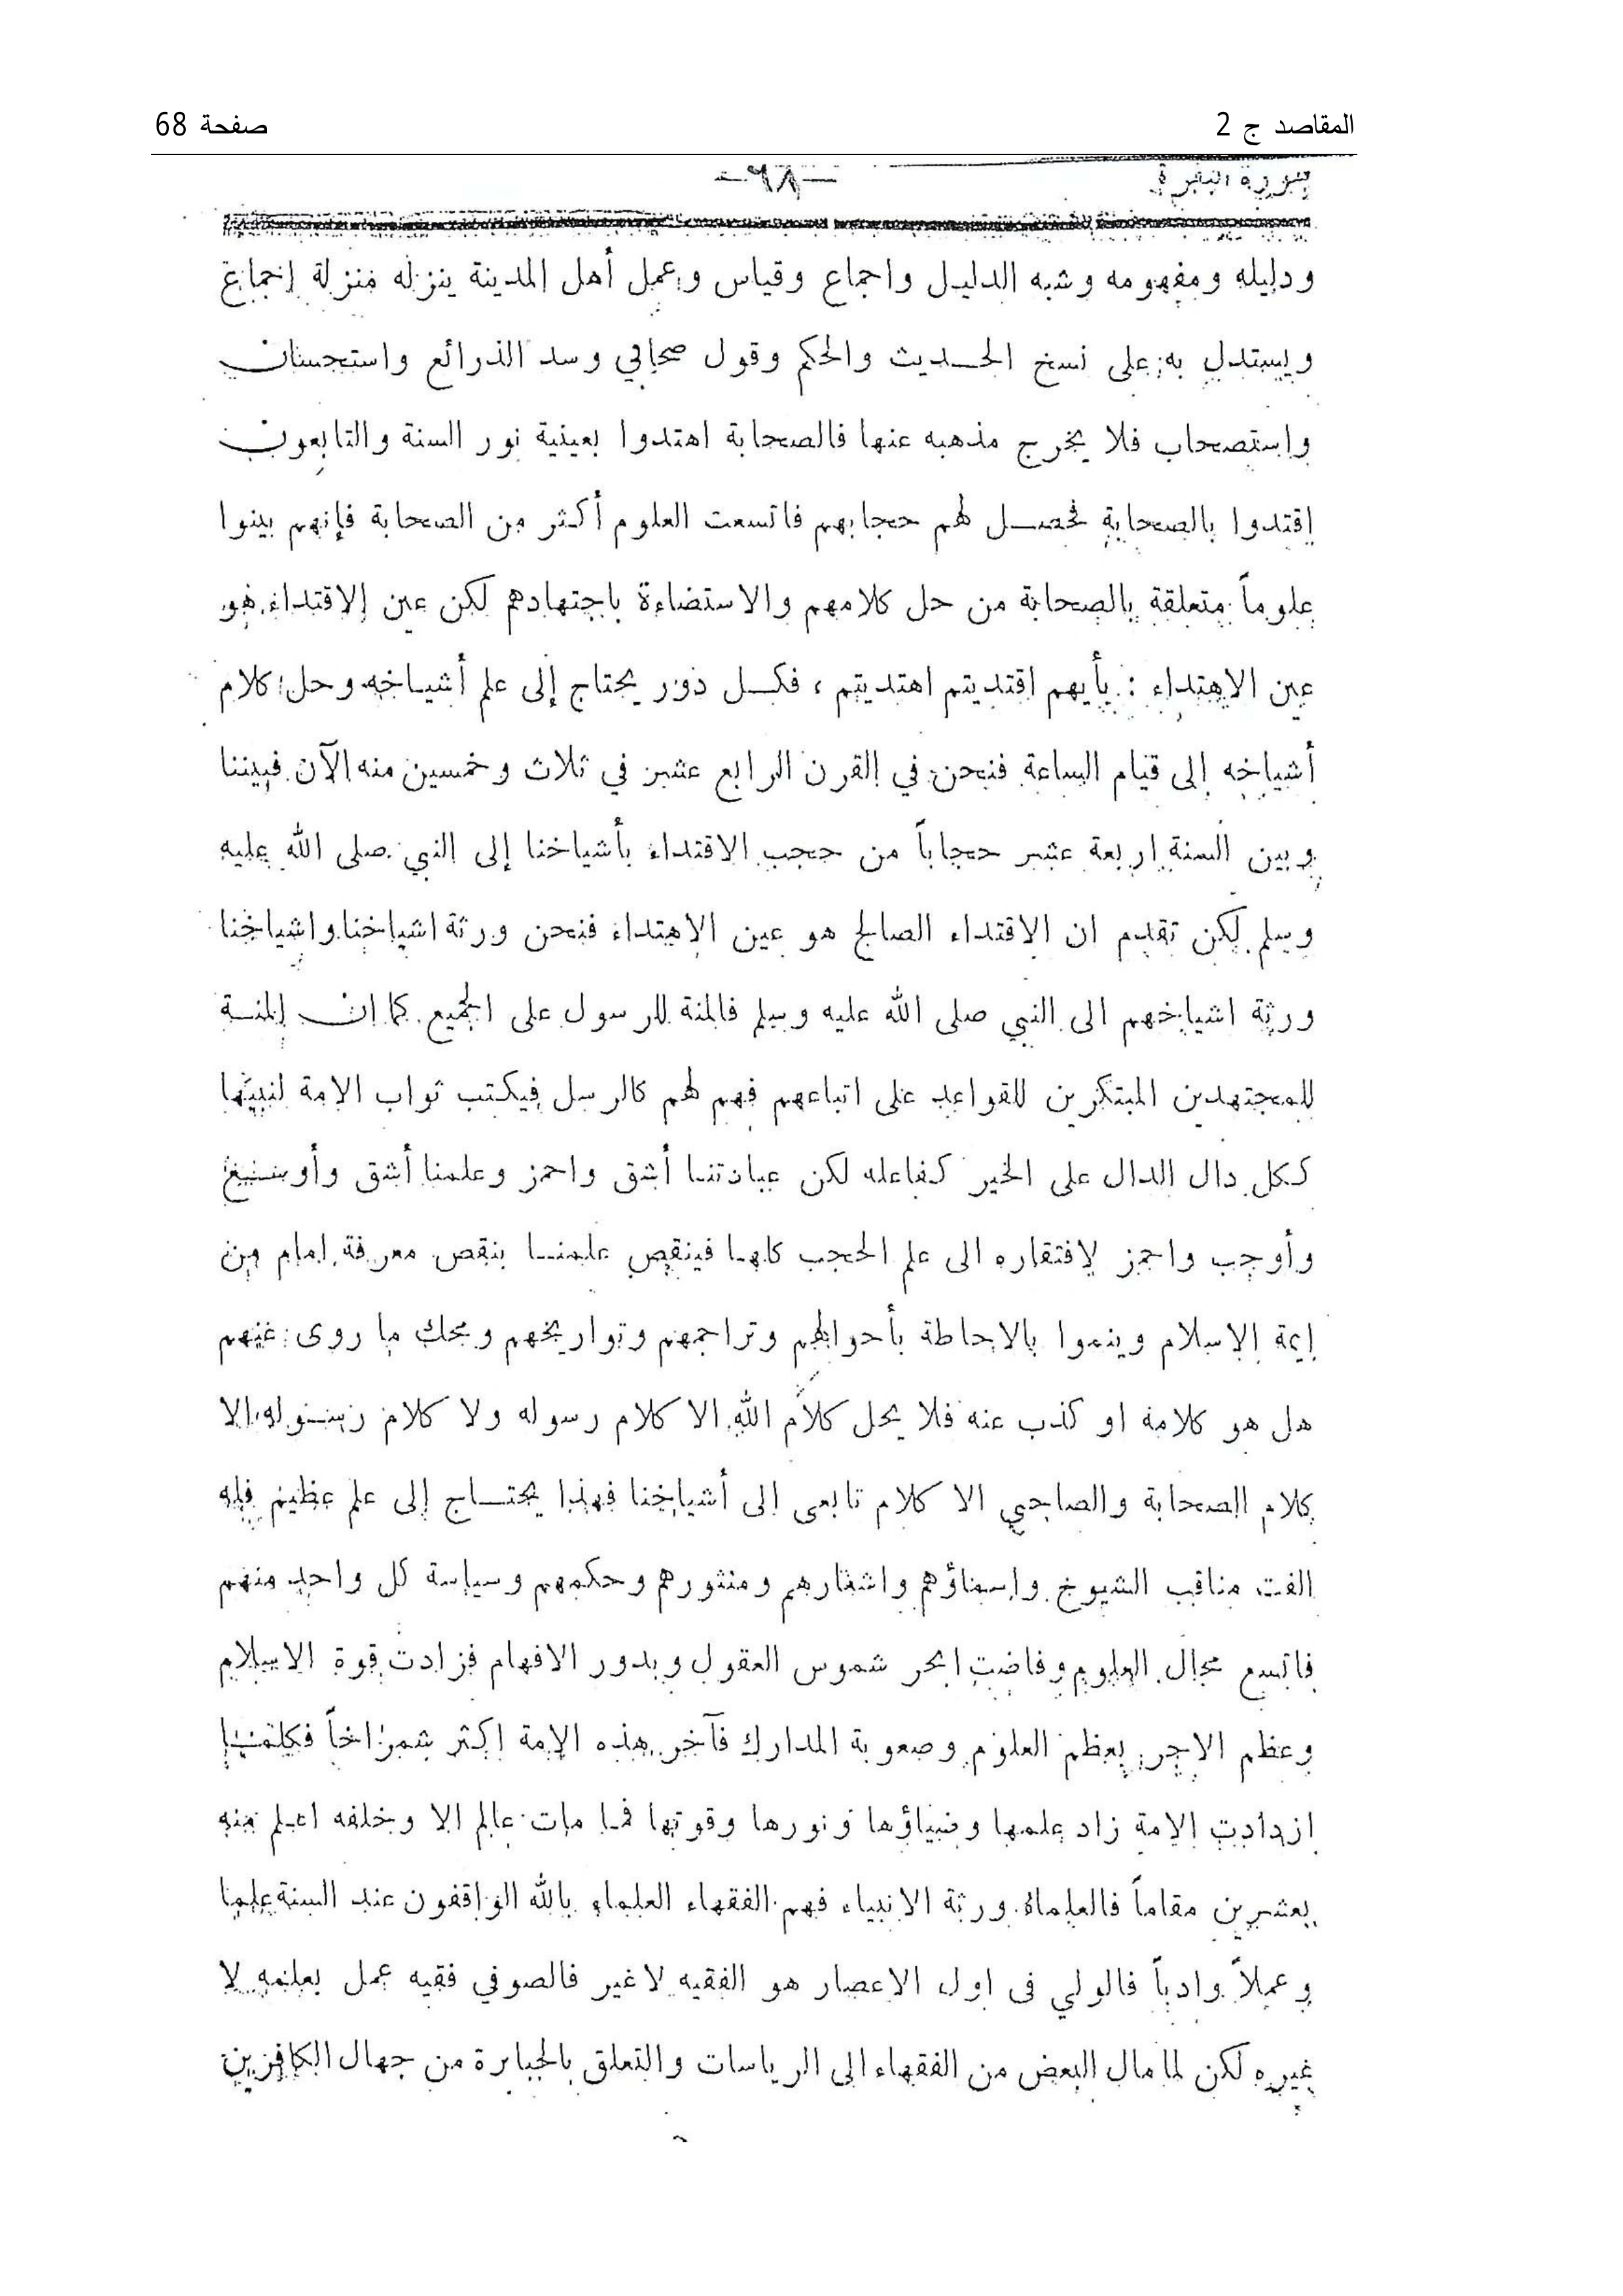 المقاصد ج 2
صفحة 68
سورة البقرة
ودليله ومفهومه وشبه الدليل واجماع وقياس وعمل أهل المدينة ينزله منزلة إجماع
ويستدل به على نسخ الحديث والحكم وقول صحابي وسد الذرائع واستحسان
واستصحاب فلا يخرج مذهبه عنها فالصحابة اهتدوا بعينية نور السنة والتابعون
اقتدوا بالصحابة فحصل لهم حجابهم فاتسعت العلوم أكثر من الصحابة فإنهم بينوا
علوماً متعلقة بالصحابة من حل كلامهم والاستضاءة باجتهادهم لكن عين الاقتداء هو
عين الاهتداء : بأيهم اقتديتم اهتديتم ، فكل دور يحتاج إلى علم أشياخه وحل كلام
أشياخه إلى قيام الساعة فنحن في القرن الرابع عشر في ثلاث وخمسين منه الآن فبيننا
وبين السنة اربعة عشر حجاباً من حجب الاقتداء بأشياخنا إلى النبي صلى الله عليه
وسلم لكن تقدم ان الاقتداء الصالح هو عين الاهتداء فنحن ورثة اشياخنا واشياخنا
ورثة اشياخهم الى النبي صلى الله عليه وسلم فالمنة للرسول على الجميع كما ان المنة
للمجتهدين المبتكرين للقواعد على اتباعهم فهم لهم كالرسل فيكتب ثواب الامة لنبيها
ككل دال الدال على الخير كفاعله لكن عبادتنا أشق واحمز وعلمنا أشق وأوسع
وأوجب واحمز لافتقاره الى علم الحجب كلها فينقص علمنا بنقص معرفة امام من
ايمة الاسلام وينموا بالاحاطة بأحوالهم وتراجمهم وتواريخهم ومحك ما روى عنهم
هل هو كلامه او كذب عنه فلا يحل كلام الله الا كلام رسوله ولا كلام رسوله الا
كلام الصحابة والصاحبي الا كلام تابعى الى أشياخنا فهذا يحتاج إلى علم عظيم فله
الفت مناقب الشيوخ واسماؤهم واشعارهم ومنثورهم وحكمهم وسياسة كل واحد منهم
فاتسع مجال العلوم وفاضت ابحر شموس العقول وبدور الافهام فزادت قوة الاسلام
وعظم الاجر بعظم العلوم وصعوبة المدارك فآخر هذه الامة اكثر شمراخاً فكلما
ازدادت الامة زاد علمها وضياؤها ونورها وقوتها فما مات عالم الا وخلفه اعلم منه
بعشرين مقاماً فالعلماء ورثة الانبياء فهم الفقهاء العلماء بالله الواقفون عند السنة علما
وعملاً وادباً فالولي فى اول الاعصار هو الفقيه لاغير فالصوفي فقيه عمل بعلمه لا
غيره لكن لما مال البعض من الفقهاء الى الرياسات والتعلق بالجبابرة من جهال الكافرين